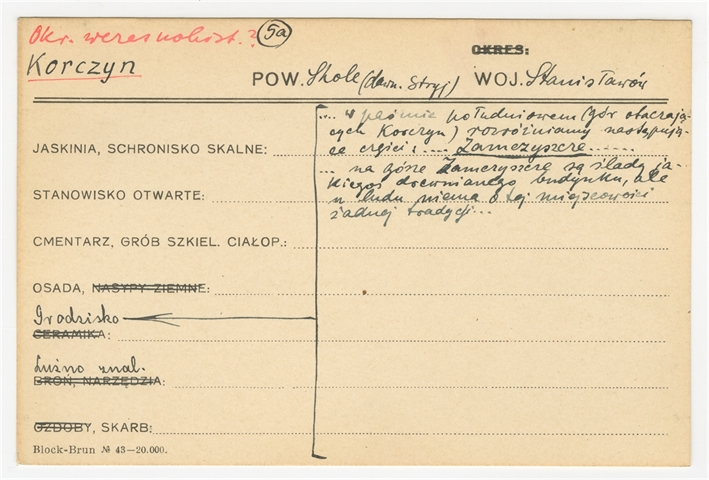 Okr. wczesnohist.? 5a
Korczyn
OKRES:
POW. Skole (dawn. Stryj) WOJ. Stanisławów
... w paśmie południowem (gór otaczają-
cych Korczyn) rozróżniamy następują-
ce części: .... Zamczyszcze ......
... na górze Zamczyszcze są ślady ja-
kiegoś drewnianego budynku, ale
u ludu niema o tej miejscowości
żadnej tradycji...
JASKINIA, SCHRONISKO SKALNE:
STANOWISKO OTWARTE:
CMENTARZ, GRÓB SZKIEL. CIAŁOP.:
OSADA, NASYPY ZIEMNE:
Grodzisko
CERAMIKA:
Luźno znal.
BROŃ, NARZĘDZIA:
OZDOBY, SKARB:
Block-Brun № 43—20.000.